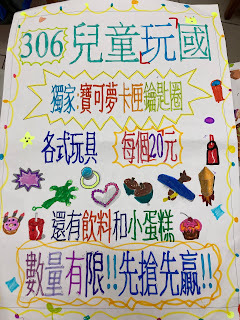 306 兒童玩國
獨家:寶可夢卡匣鑰匙圈
各式玩具 每個20元
還有飲料和小蛋糕
數量有限!!先搶先贏!!